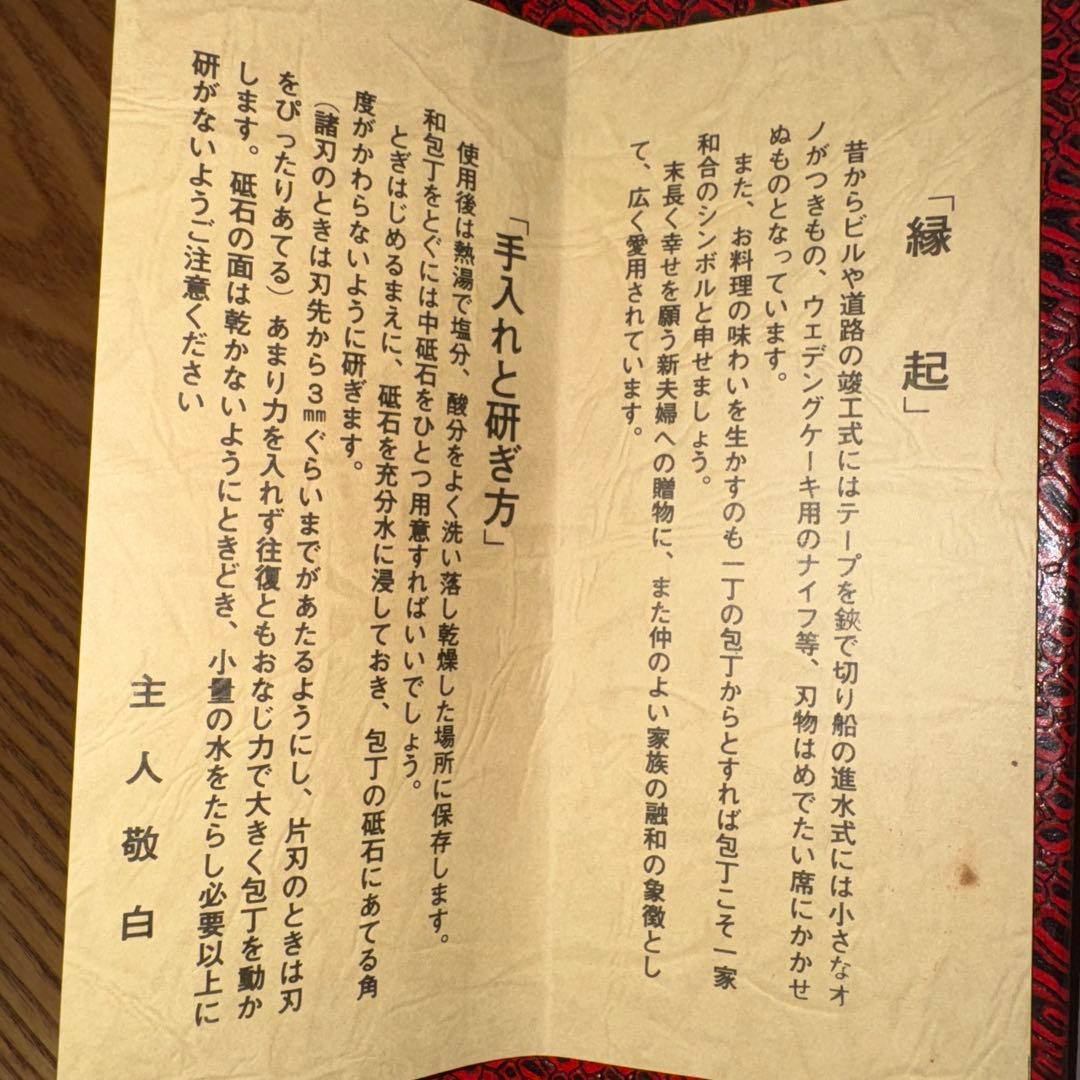 「縁起」
昔からビルや道路の竣工式にはテープを鋏で切り船の進水式には小さなオ
ノがつきもの、ウェデングケーキ用のナイフ等、刃物はめでたい席にかかせ
ぬものとなっています。
また、お料理の味わいを生かすのも一丁の包丁からとすれば包丁こそ一家
和合のシンボルと申せましょう。
末長く幸せを願う新夫婦への贈物に、また仲のよい家族の融和の象徴とし
て、広く愛用されています。
「手入れと研ぎ方」
使用後は熱湯で塩分、酸分をよく洗い落し乾燥した場所に保存します。
和包丁をとぐには中砥石をひとつ用意すればいいでしょう。
とぎはじめるまえに、砥石を充分水に浸しておき、包丁の砥石にあてる角
度がかわらないように研ぎます。
(諸刃のときは刃先から3㎜ぐらいまでがあたるようにし、片刃のときは刃
をぴったりあてる)あまり力を入れず往復ともおなじ力で大きく包丁を動か
します。砥石の面は乾かないようにときどき、小量の水をたらし必要以上に
研がないようご注意ください
主人敬白